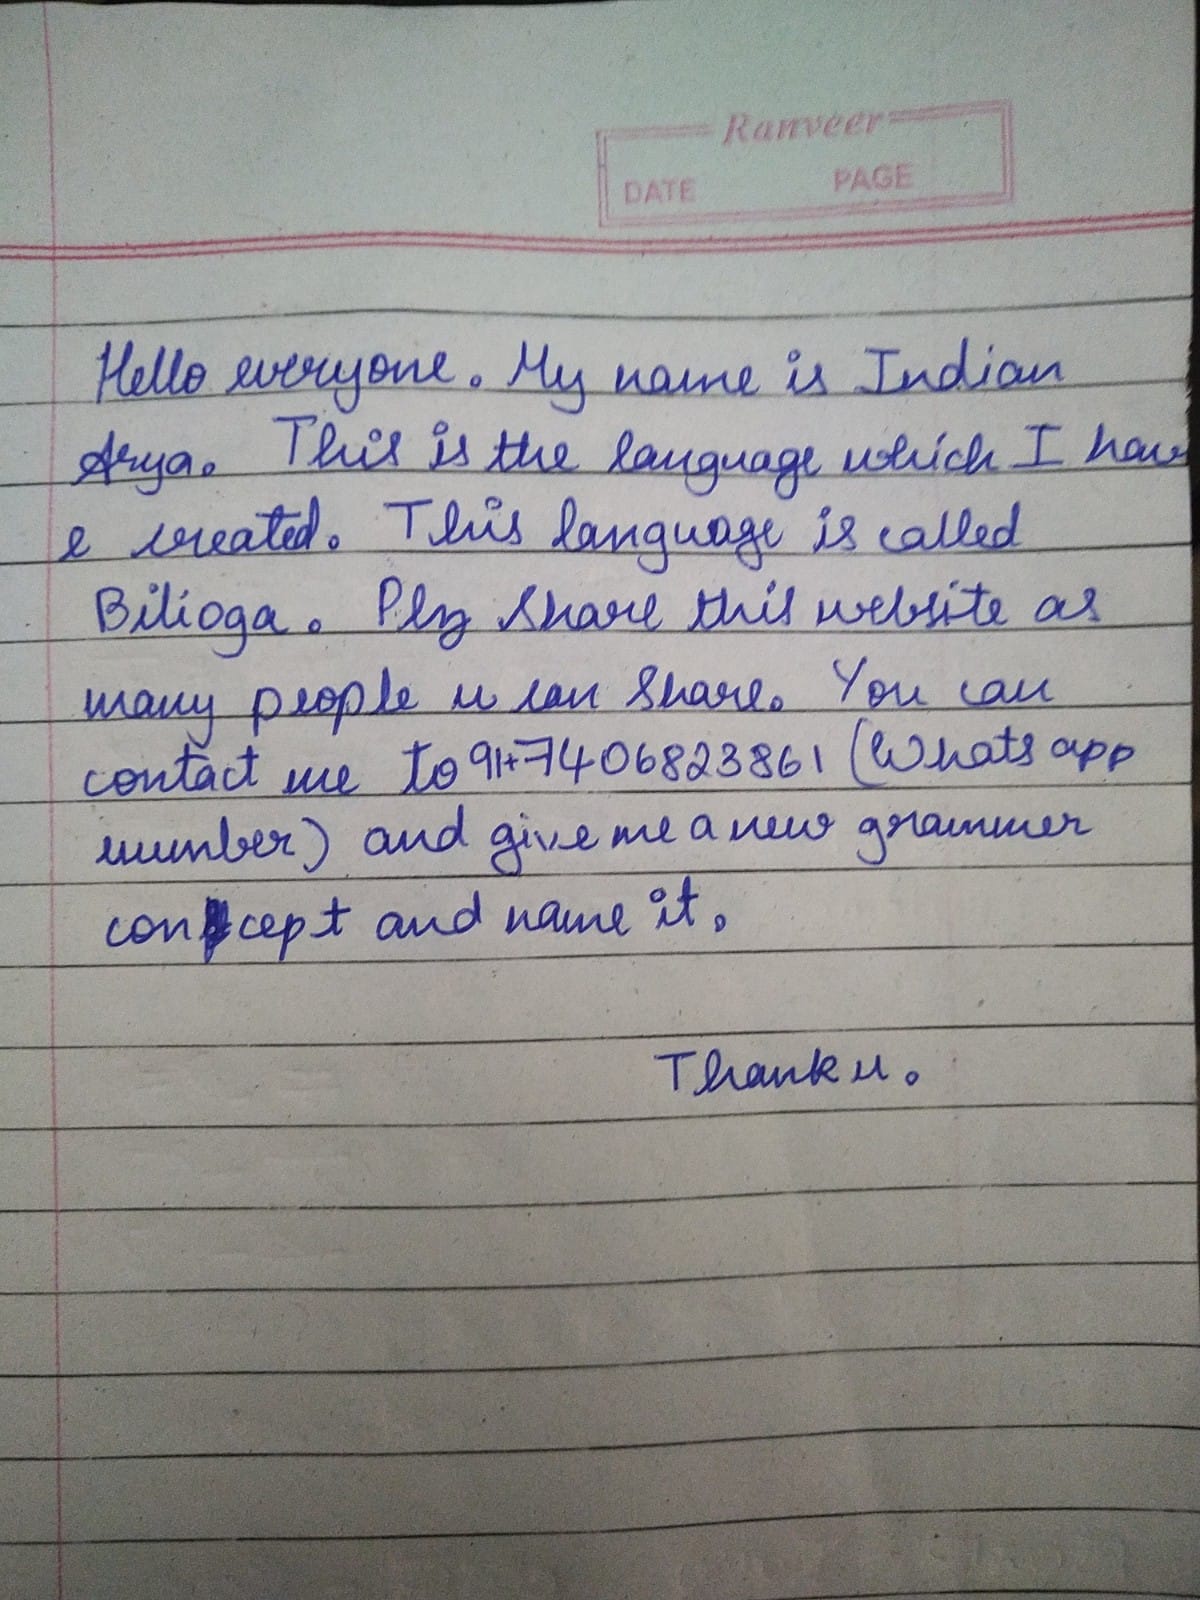 Ranveer
DATE PAGE
Hello everyone. My name is Indian
Arya. This is the language which I hav
e created. This language is called
Bilioga. Plz share this website as
many people u can share. You can
contact me to 91+7406823861 (Whats app
number) and give me a new grammer
concept and name it.
Thank u.